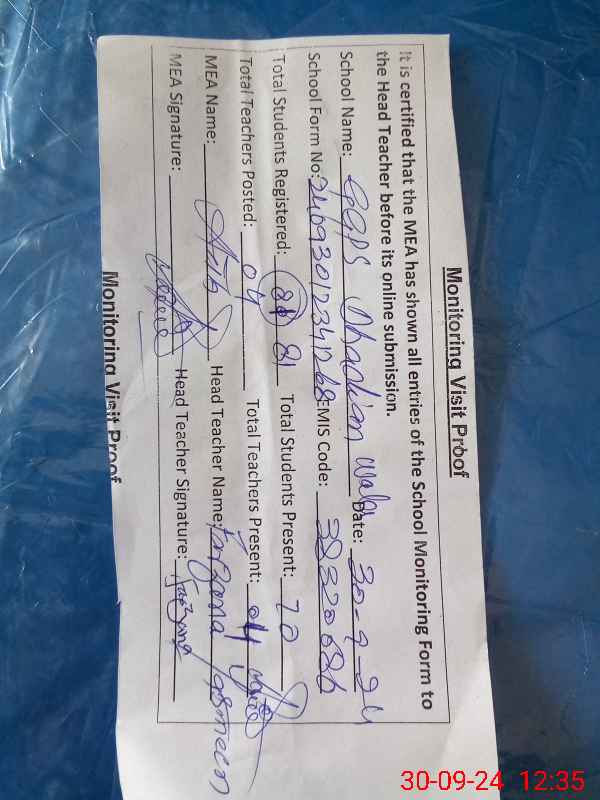 Monitoring Visit Proof
It is certified that the MEA has shown all entries of the School Monitoring Form to
the Head Teacher before its online submission.
School Name: GGPS Dhadian wala Date: 30-9-24
School Form No: 24093012341268 EMIS Code: 38320686
Total Students Registered: 81 Total Students Present: 70
Total Teachers Posted: 04 Total Teachers Present: 04
MEA Name: Head Teacher Name: Farzana Yasmeen
MEA Signature: Head Teacher Signature: Farzana
Monitoring Visit Proof
30-09-24 12:35